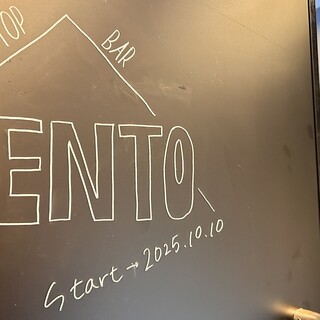 TOP
BAR
ENTO
Start→2025.10.10